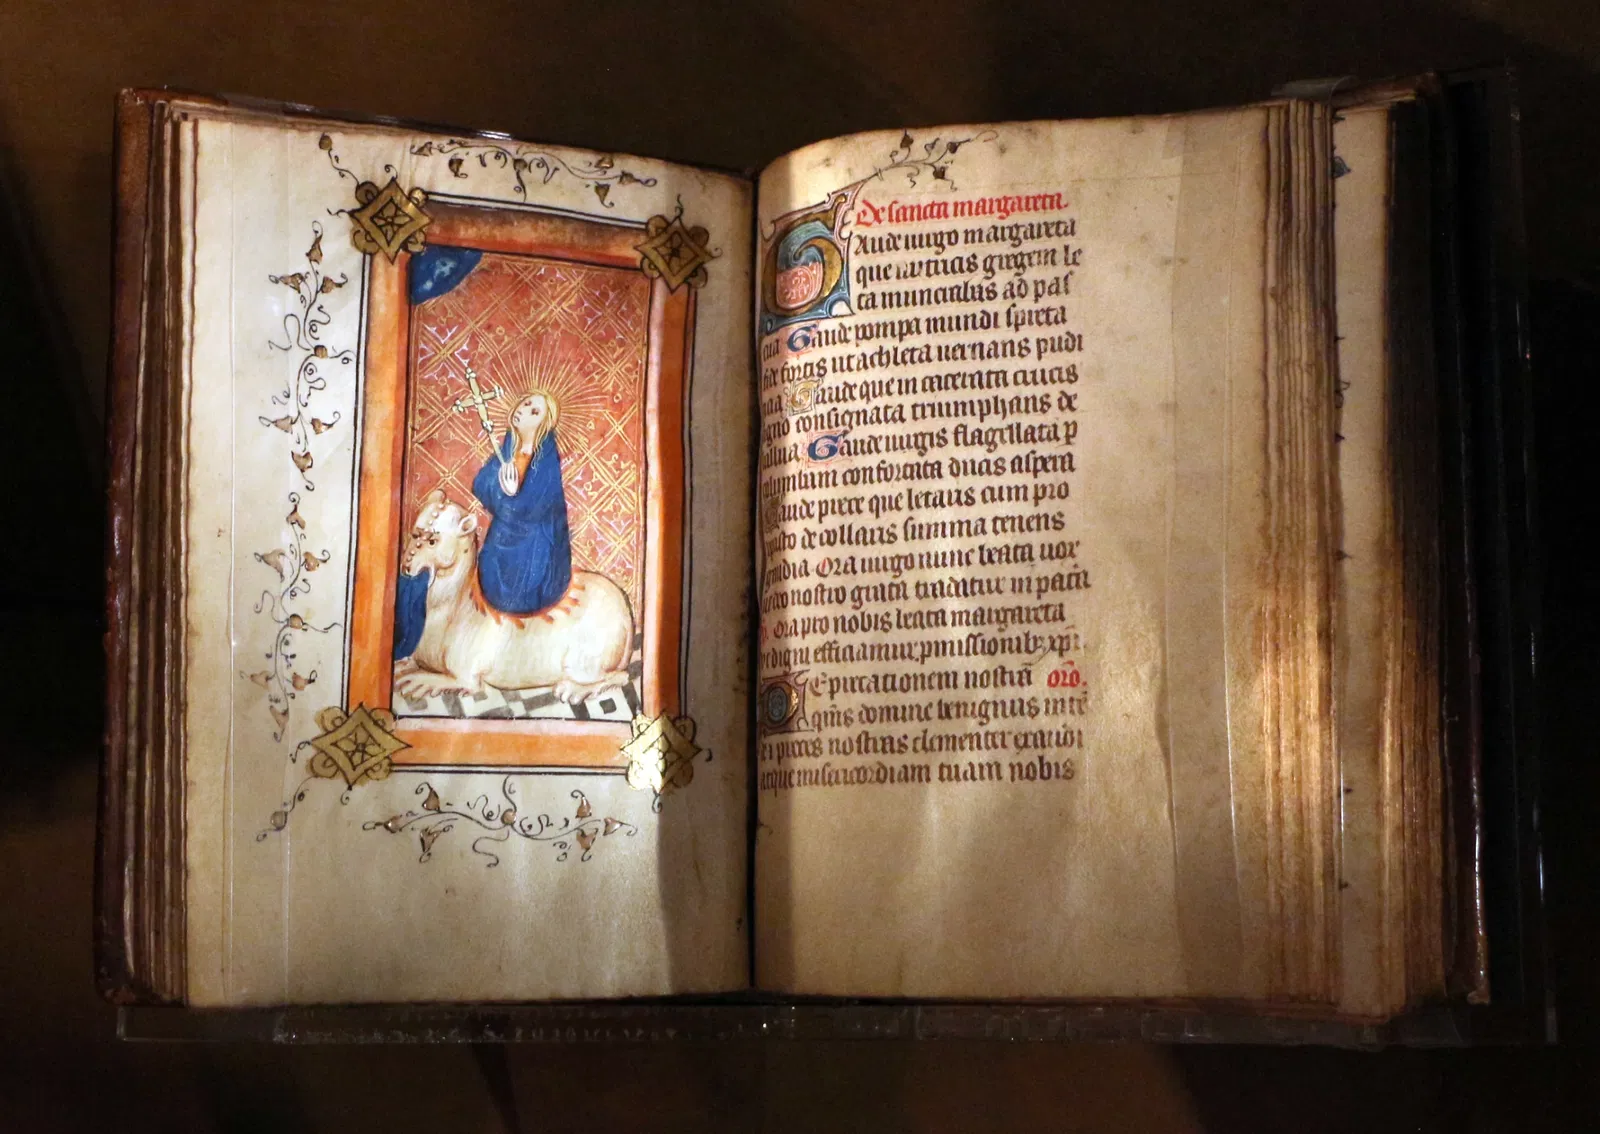 De sancta margareta.
Gaude uirgo margareta
que nutricis gregem le
ta munerabus ad pas
cua Gaude pompa mundi spreta
fide fortis ut athleta uernans pudi
Gaude que in carcerata crucis
signo consignata triumphans de
Gaude uirgis flagellata p
columbam confortata ducis aspera
Gaude prece que letaris cum pro
de collaris summa tenens
gaudia Ora uirgo nunc beata uor
nostro grata tradatur in pacta
Ora pro nobis beata margareta
digni efficiamur pmissionib xpi.
Deprecationem nostrā oro.
qms domine benignus inte
preces nostras clementer exaudi
atque misericordiam tuam nobis